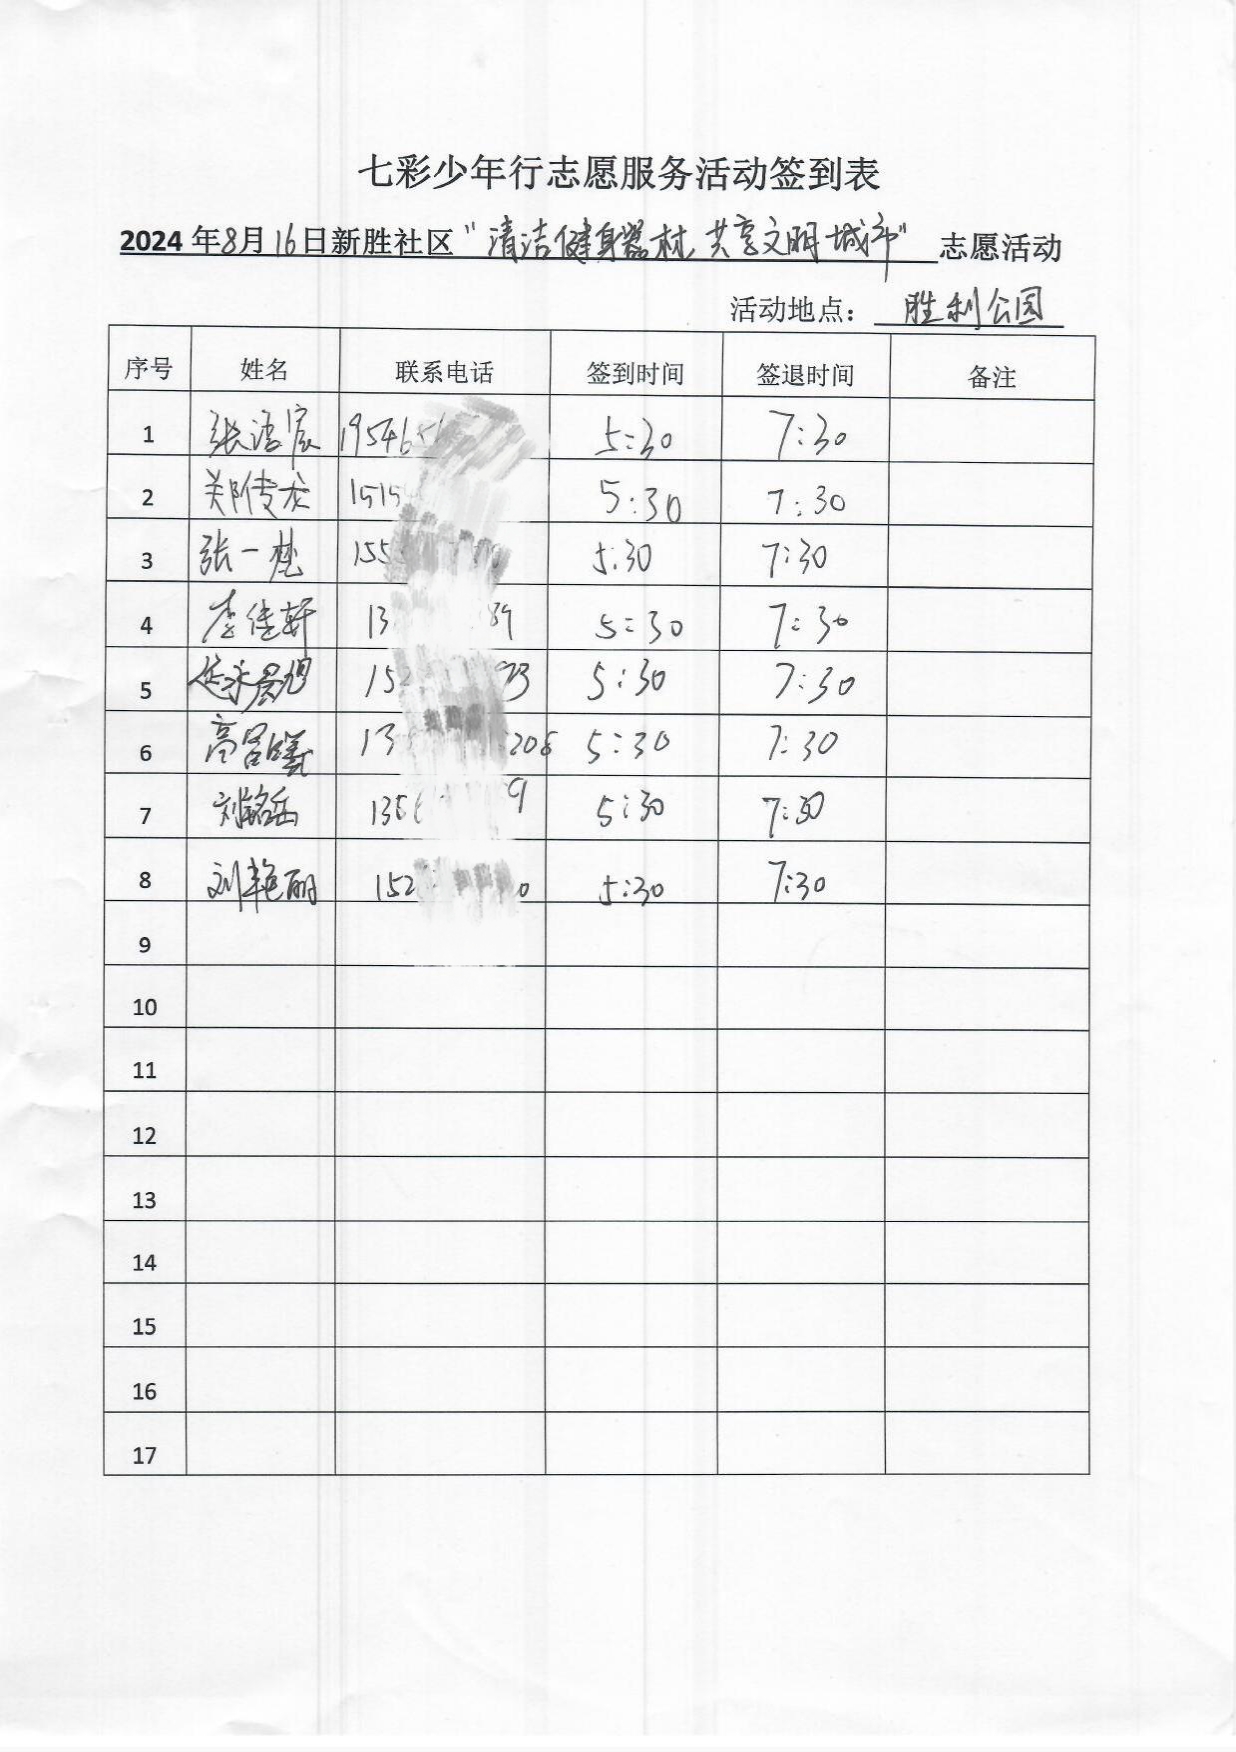 七彩少年行志愿服务活动签到表
2024年8月16日新胜社区“清洁健身器材,共享文明城市”志愿活动
活动地点：胜利公园
序号 姓名 联系电话 签到时间 签退时间 备注
1 张 宸 5:30 7:30
2 郑传龙 5:30 7:30
3 张一 5:30 7:30
4 李佳轩 5:30 7:30
5 延永晨旭 5:30 7:30
6 高 曦 5:30 7:30
7 刘铭岳 5:30 7:30
8 刘艳丽 5:30 7:30
9
10
11
12
13
14
15
16
17